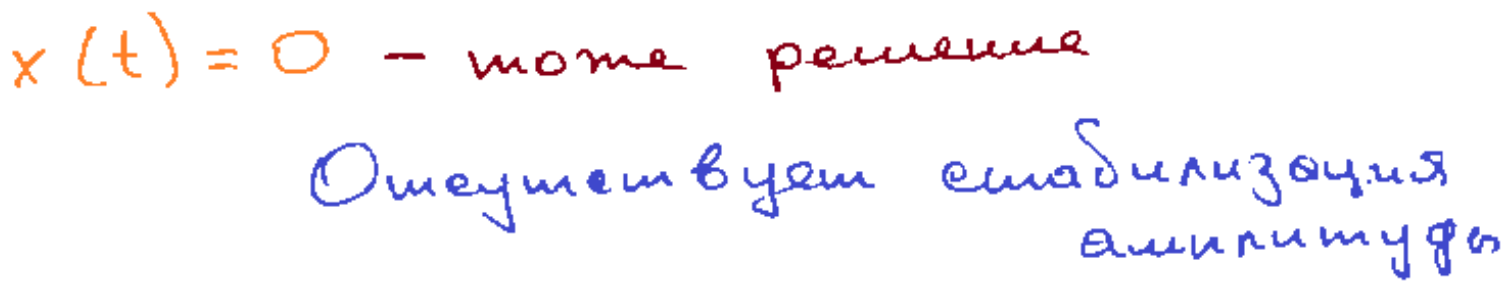 x(t) = 0 - тоже решение
Отсутствует стабилизация
амплитуды